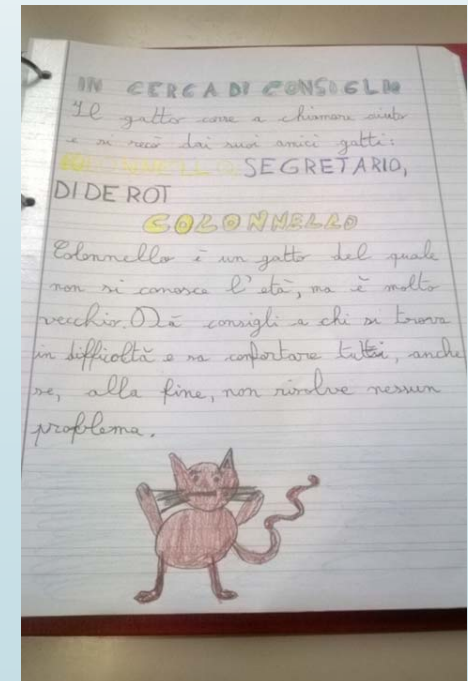 IN CERCA DI CONSIGLIO
Il gatto corse a chiamare aiuto
e si recò dai suoi amici gatti:
COLONNELLO, SEGRETARIO,
DIDEROT
COLONNELLO
Colonnello è un gatto del quale
non si conosce l'età, ma è molto
vecchio. Dà consigli a chi si trova
in difficoltà e sa confortare tutti, anche
se, alla fine, non risolve nessun
problema.